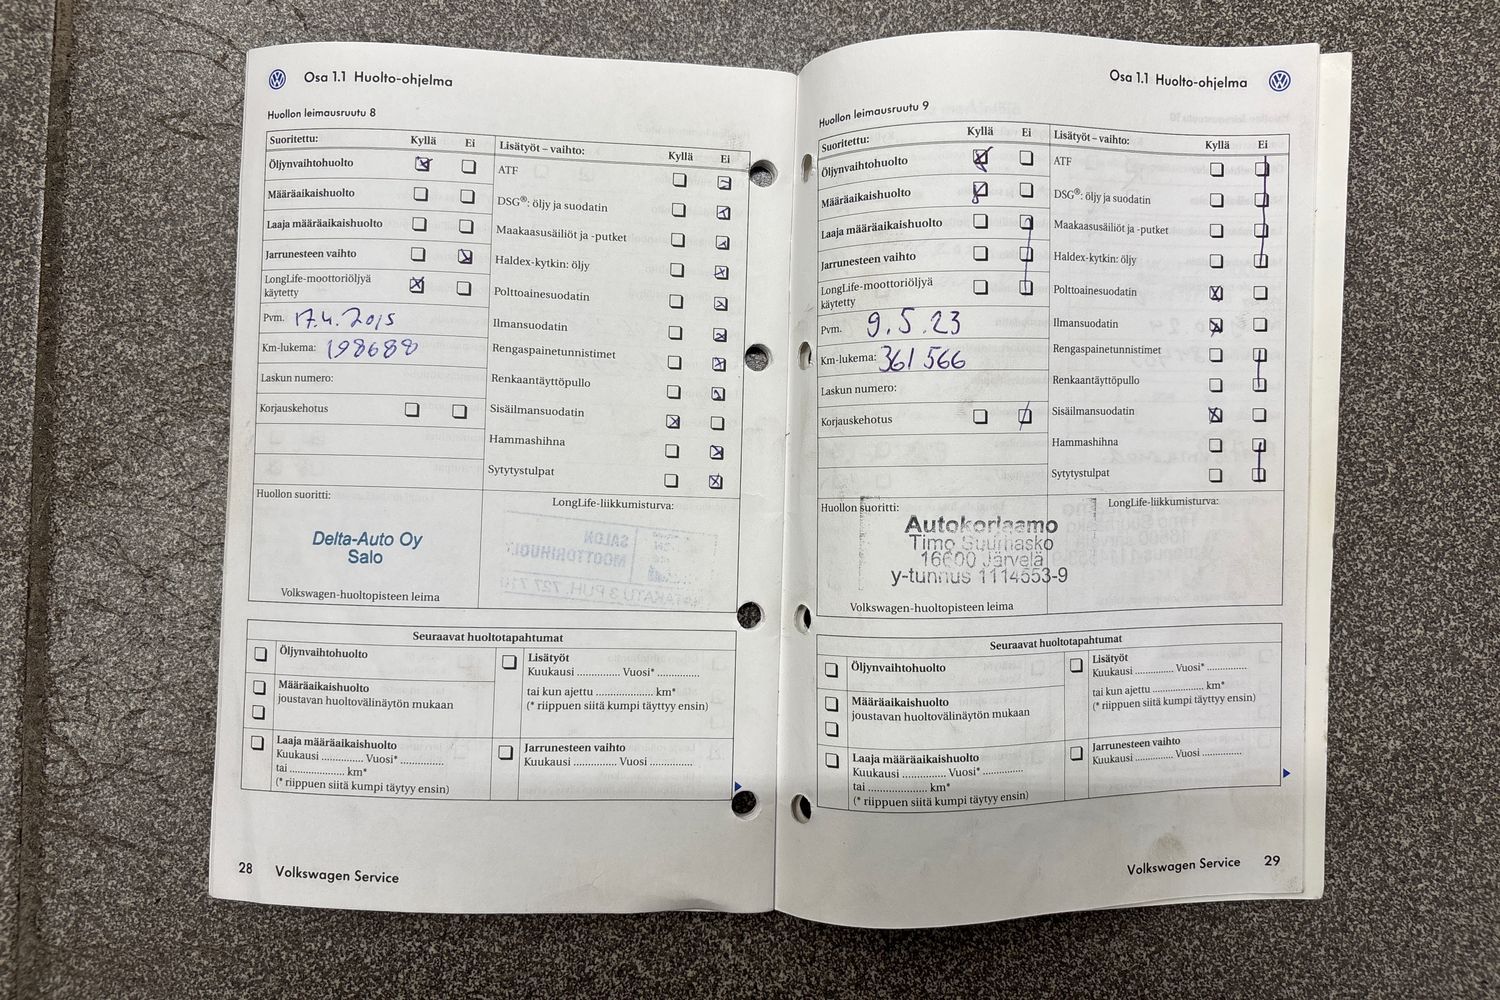 Osa 1.1 Huolto-ohjelma
Huollon leimausruutu 8
Suoritettu: Kyllä Ei
Öljynvaihtohuolto
Määräaikaishuolto
Laaja määräaikaishuolto
Jarrunesteen vaihto
LongLife-moottoriöljyä
käytetty
Pvm. 17.4.2015
Km-lukema: 198688
Laskun numero:
Korjauskehotus
Lisätyöt – vaihto: Kyllä Ei
ATF
DSG®: öljy ja suodatin
Maakaasusäiliöt ja -putket
Haldex-kytkin: öljy
Polttoainesuodatin
Ilmansuodatin
Rengaspainetunnistimet
Renkaantäyttöpullo
Sisäilmansuodatin
Hammashihna
Sytytystulpat
Huollon suoritti:
Delta-Auto Oy
Salo
Volkswagen-huoltopisteen leima
LongLife-liikkumisturva:
Seuraavat huoltotapahtumat
Öljynvaihtohuolto
Määräaikaishuolto
joustavan huoltovälinäytön mukaan
Laaja määräaikaishuolto
Kuukausi .............. Vuosi* ..............
tai .................... km*
(* riippuen siitä kumpi täytyy ensin)
Lisätyöt
Kuukausi .............. Vuosi* ..............
tai kun ajettu .................... km*
(* riippuen siitä kumpi täyttyy ensin)
Jarrunesteen vaihto
Kuukausi .............. Vuosi ..............
28 Volkswagen Service
Osa 1.1 Huolto-ohjelma
Huollon leimausruutu 9
Suoritettu: Kyllä Ei
Öljynvaihtohuolto
Määräaikaishuolto
Laaja määräaikaishuolto
Jarrunesteen vaihto
LongLife-moottoriöljyä
käytetty
Pvm. 9.5.23
Km-lukema: 361 566
Laskun numero:
Korjauskehotus
Lisätyöt – vaihto: Kyllä Ei
ATF
DSG®: öljy ja suodatin
Maakaasusäiliöt ja -putket
Haldex-kytkin: öljy
Polttoainesuodatin
Ilmansuodatin
Rengaspainetunnistimet
Renkaantäyttöpullo
Sisäilmansuodatin
Hammashihna
Sytytystulpat
Huollon suoritti:
Autokorjaamo
Timo Suurnasko
16600 Järvelä
y-tunnus 1114553-9
Volkswagen-huoltopisteen leima
LongLife-liikkumisturva:
Seuraavat huoltotapahtumat
Öljynvaihtohuolto
Määräaikaishuolto
joustavan huoltovälinäytön mukaan
Laaja määräaikaishuolto
Kuukausi .............. Vuosi* ..............
tai .................... km*
(* riippuen siitä kumpi täytyy ensin)
Lisätyöt
Kuukausi .............. Vuosi* ..............
tai kun ajettu .................... km*
(* riippuen siitä kumpi täyttyy ensin)
Jarrunesteen vaihto
Kuukausi .............. Vuosi ..............
Volkswagen Service 29